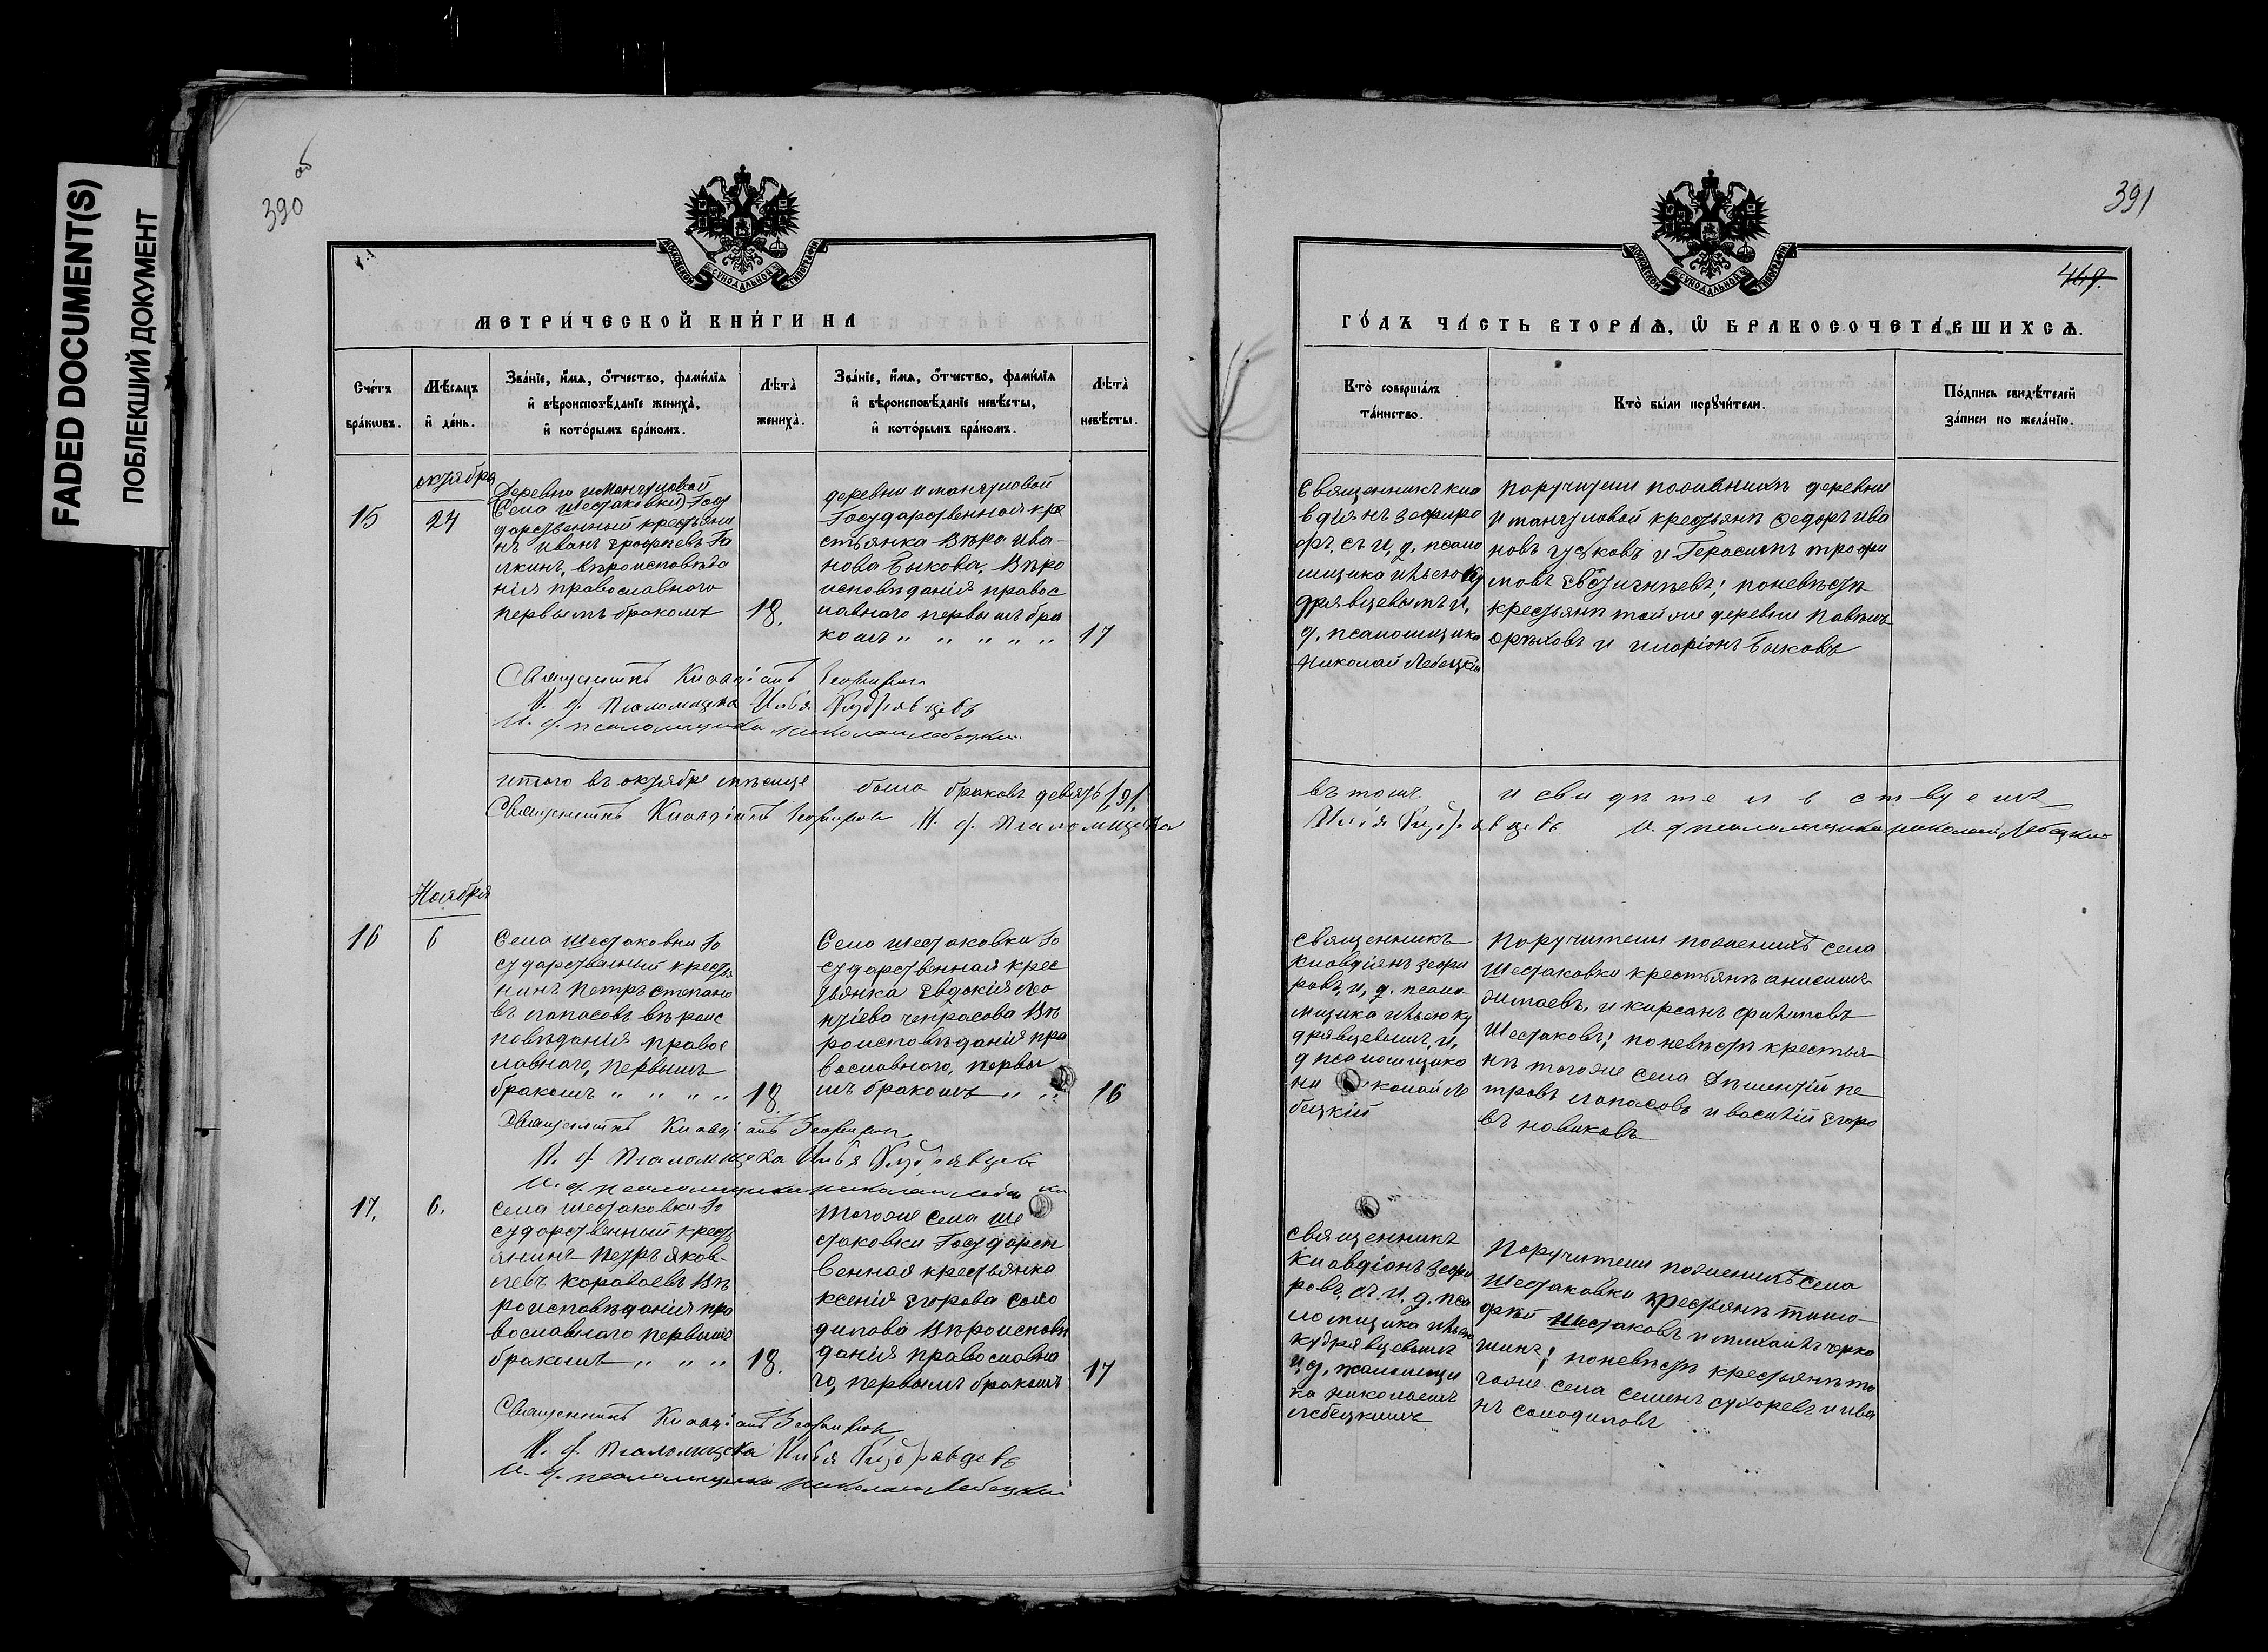 FADED DOCUMENT(S)
ПОБЛЕКШИЙ ДОКУМЕНТ
390 об
МОСКОВСКОЙ СѴНОДАЛЬНОЙ ТИПОГРАФІИ
МЕТРИ́ЧЕСКОЙ КНИ́ГИ НА
Сче́тъ бра́кѡвъ.
Мѣ́сяцъ и҆ де́нь.
Зва́нїе, и҆́мѧ, ѻ҆́тчество, фами́лїѧ
и҆ вѣроисповѣ́данїе жениха̀,
и҆ кото́рымъ бра́комъ.
Лѣта̀ жениха̀.
Зва́нїе, и҆́мѧ, ѻ҆́тчество, фами́лїѧ
и҆ вѣроисповѣ́данїе невѣ́сты,
и҆ кото́рымъ бра́комъ.
Лѣта̀ невѣ́сты.
октября
15
24
Деревни
(Села Шестаковки) Госу
дарственный крестьяни
нъ Иванъ
вѣроисповѣда
нія православнаго
первымъ бракомъ
18.
деревни
Государственная кре
стьянка Вѣра Ива-
нова Быкова, Вѣро
исповѣданія правос
лавнаго первымъ бра
комъ " " " " "
17
Священникъ Клавдіанъ
И. д. Псаломщика Илья Кудрявцевъ
И. д. псаломщика Николай Лебецкій
итого въ октябре мѣсяце было браковъ девять /9/.
Священникъ Клавдіанъ И. д. Псаломщика
Ноября
16
6
Села Шестаковки Го
сударственный крестья
нинъ Петръ Степано
въ вѣроис
повѣданія правос
лавнаго, первымъ
бракомъ " " " "
18.
Село Шестаковки Го
сударственная крес
тьянка Евдокія Ле
нтіева Вѣ
роисповѣданія пра
вославнаго, первы
мъ бракомъ " "
16
Священникъ Клавдіанъ
И. д. Псаломщика Илья Кудрявцевъ
И. д. псаломщика Николай
17.
6.
Села Шестаковки Го
сударственный кресть
янинъ Петръ Яков-
левъ Караваевъ Вѣ
роисповѣданія пра
вославнаго первымъ
бракомъ " " "
18.
Того же села Ше
стаковки Государст
венная крестьянка
Ксенія Егорова Само
дурова Вѣроисповѣ
данія православна
го, первымъ бракомъ
17
Священникъ Клавдіанъ
И. д. Псаломщика Илья Кудрявцевъ
И. д. псаломщика Николай Лебецкій
391
469.
МОСКОВСКОЙ СѴНОДАЛЬНОЙ ТИПОГРАФІИ
ГО́ДЪ ЧА́СТЬ ВТОРА́Ѧ, Ѽ БРАКОСОЧЕТА́ВШИХСѦ.
Кто̀ соверша́лъ та́инство.
Кто̀ бы́ли порꙋчи́тели.
По́дпись свидѣ́телей за́писи по жела́нїю.
Священникъ Кла
вдіянъ Зефиро
въ, съ И, д, псало
мщика Ильею Ку
дрявцевымъ и,
д, псаломщика
Николай Лебецкій
Поручители по женихѣ деревни
крестьяне Федоръ Ива
новъ Гуськовъ и Герасимъ Трофи
мовъ по невѣстѣ
крестьяне той же деревни Павелъ
Орѣховъ и Иларіонъ Быковъ
въ томъ и свидѣтельствуемъ
Илья Кудрявцевъ И. д псаломщика Николай Лебецкій
Священникъ
Клавдіянъ Зефи
ровъ, И, д, псало-
мщика Ильею Ку
дрявцевымъ, и,
д псаломщика
Николай Ле
бецкій
Поручители по женихѣ села
Шестаковки крестьяне Анисимъ
и Кирсанъ Филиповъ
Шестаковъ; по невѣстѣ крестья
не того же села Дементій Пе
тровъ и Василій Егоро
въ Новиковъ
Священникъ
Клавдіонъ Зефи
ровъ, съ И, д, пса
ломщика Ильею
Кудрявцевымъ
И, д, псаломщи
ка Николаемъ
Лебецкимъ
Поручители по женихѣ села
Шестаковки крестьяне Тимо-
фей Шестаковъ и Михаилъ Черка
шинъ; по невѣстѣ крестьяне то
го же села Семенъ Сухоревъ и Ива
нъ Самодуровъ